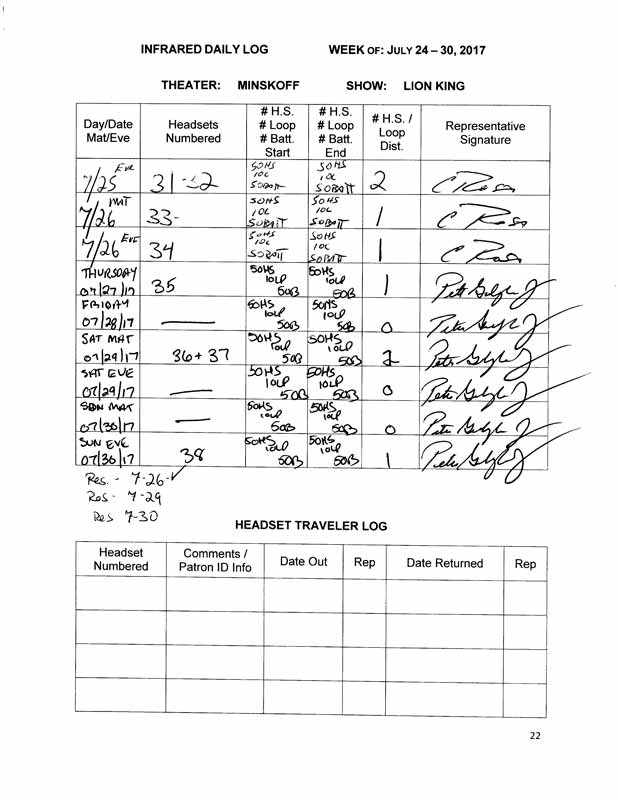 INFRARED DAILY LOG WEEK OF: JULY 24 – 30, 2017
THEATER: MINSKOFF SHOW: LION KING
Day/Date Mat/Eve Headsets Numbered # H.S. # Loop # Batt. Start # H.S. # Loop # Batt. End # H.S. / Loop Dist. Representative Signature
7/25 EVE 31 50HS 10L 50BATT 50HS 10L 50BATT 2
7/26 MAT 33- 50HS 10L 50BATT 50HS 10L 50BATT 1
7/26 EVE 34 50HS 10L 50BATT 50HS 10L 50BATT 1
THURSDAY 07/27/17 35 50HS 10LP 50B 50HS 10LP 50B 1
FRIDAY 07/28/17 — 50HS 10LP 50B 50HS 10LP 50B 0
SAT MAT 07/29/17 36+37 50HS 10LP 50B 50HS 10LP 50B 2
SAT EVE 07/29/17 — 50HS 10LP 50B 50HS 10LP 50B 0
SUN MAT 07/30/17 — 50HS 10LP 50B 50HS 10LP 50B 0
SUN EVE 07/30/17 38 50HS 10LP 50B 50HS 10LP 50B 1
Res. - 7-26- ✓
Res - 7-29
Res 7-30
HEADSET TRAVELER LOG
Headset Numbered Comments / Patron ID Info Date Out Rep Date Returned Rep
22